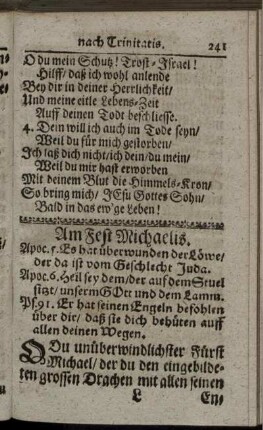 nach Trinitatis. 241
O du mein Schutz! Trost-Israel!
Hilff/ daß ich wohl anlende
Bey dir in deiner Herrlichkeit/
Und meine eitle Lebens-Zeit
Auff deinen Todt beschliesse.
4. Dein will ich auch im Tode seyn/
Weil du für mich gestorben/
Ich laß dich nicht/ ich dein/ du mein/
Weil du mir hast erworben
Mit deinem Blut die Himmels-Kron/
So bring mich/ JEsu Gottes Sohn/
Bald in das ew'ge Leben!
Am Fest Michaelis.
Apoc. 5. Es hat überwunden der Löwe/
der da ist vom Geschlecht Juda.
Apoc. 6. Heil sey dem/ der auf dem Stuel
sitzt/ unserm GOtt und dem Lamm.
Ps. 91. Er hat seinen Engeln befohlen
über dir/ daß sie dich behüten auff
allen deinen Wegen.
O Du unüberwindlichster Fürst
Michael/ der du den eingebilde-
ten grossen Drachen mit allen seinen
L En-